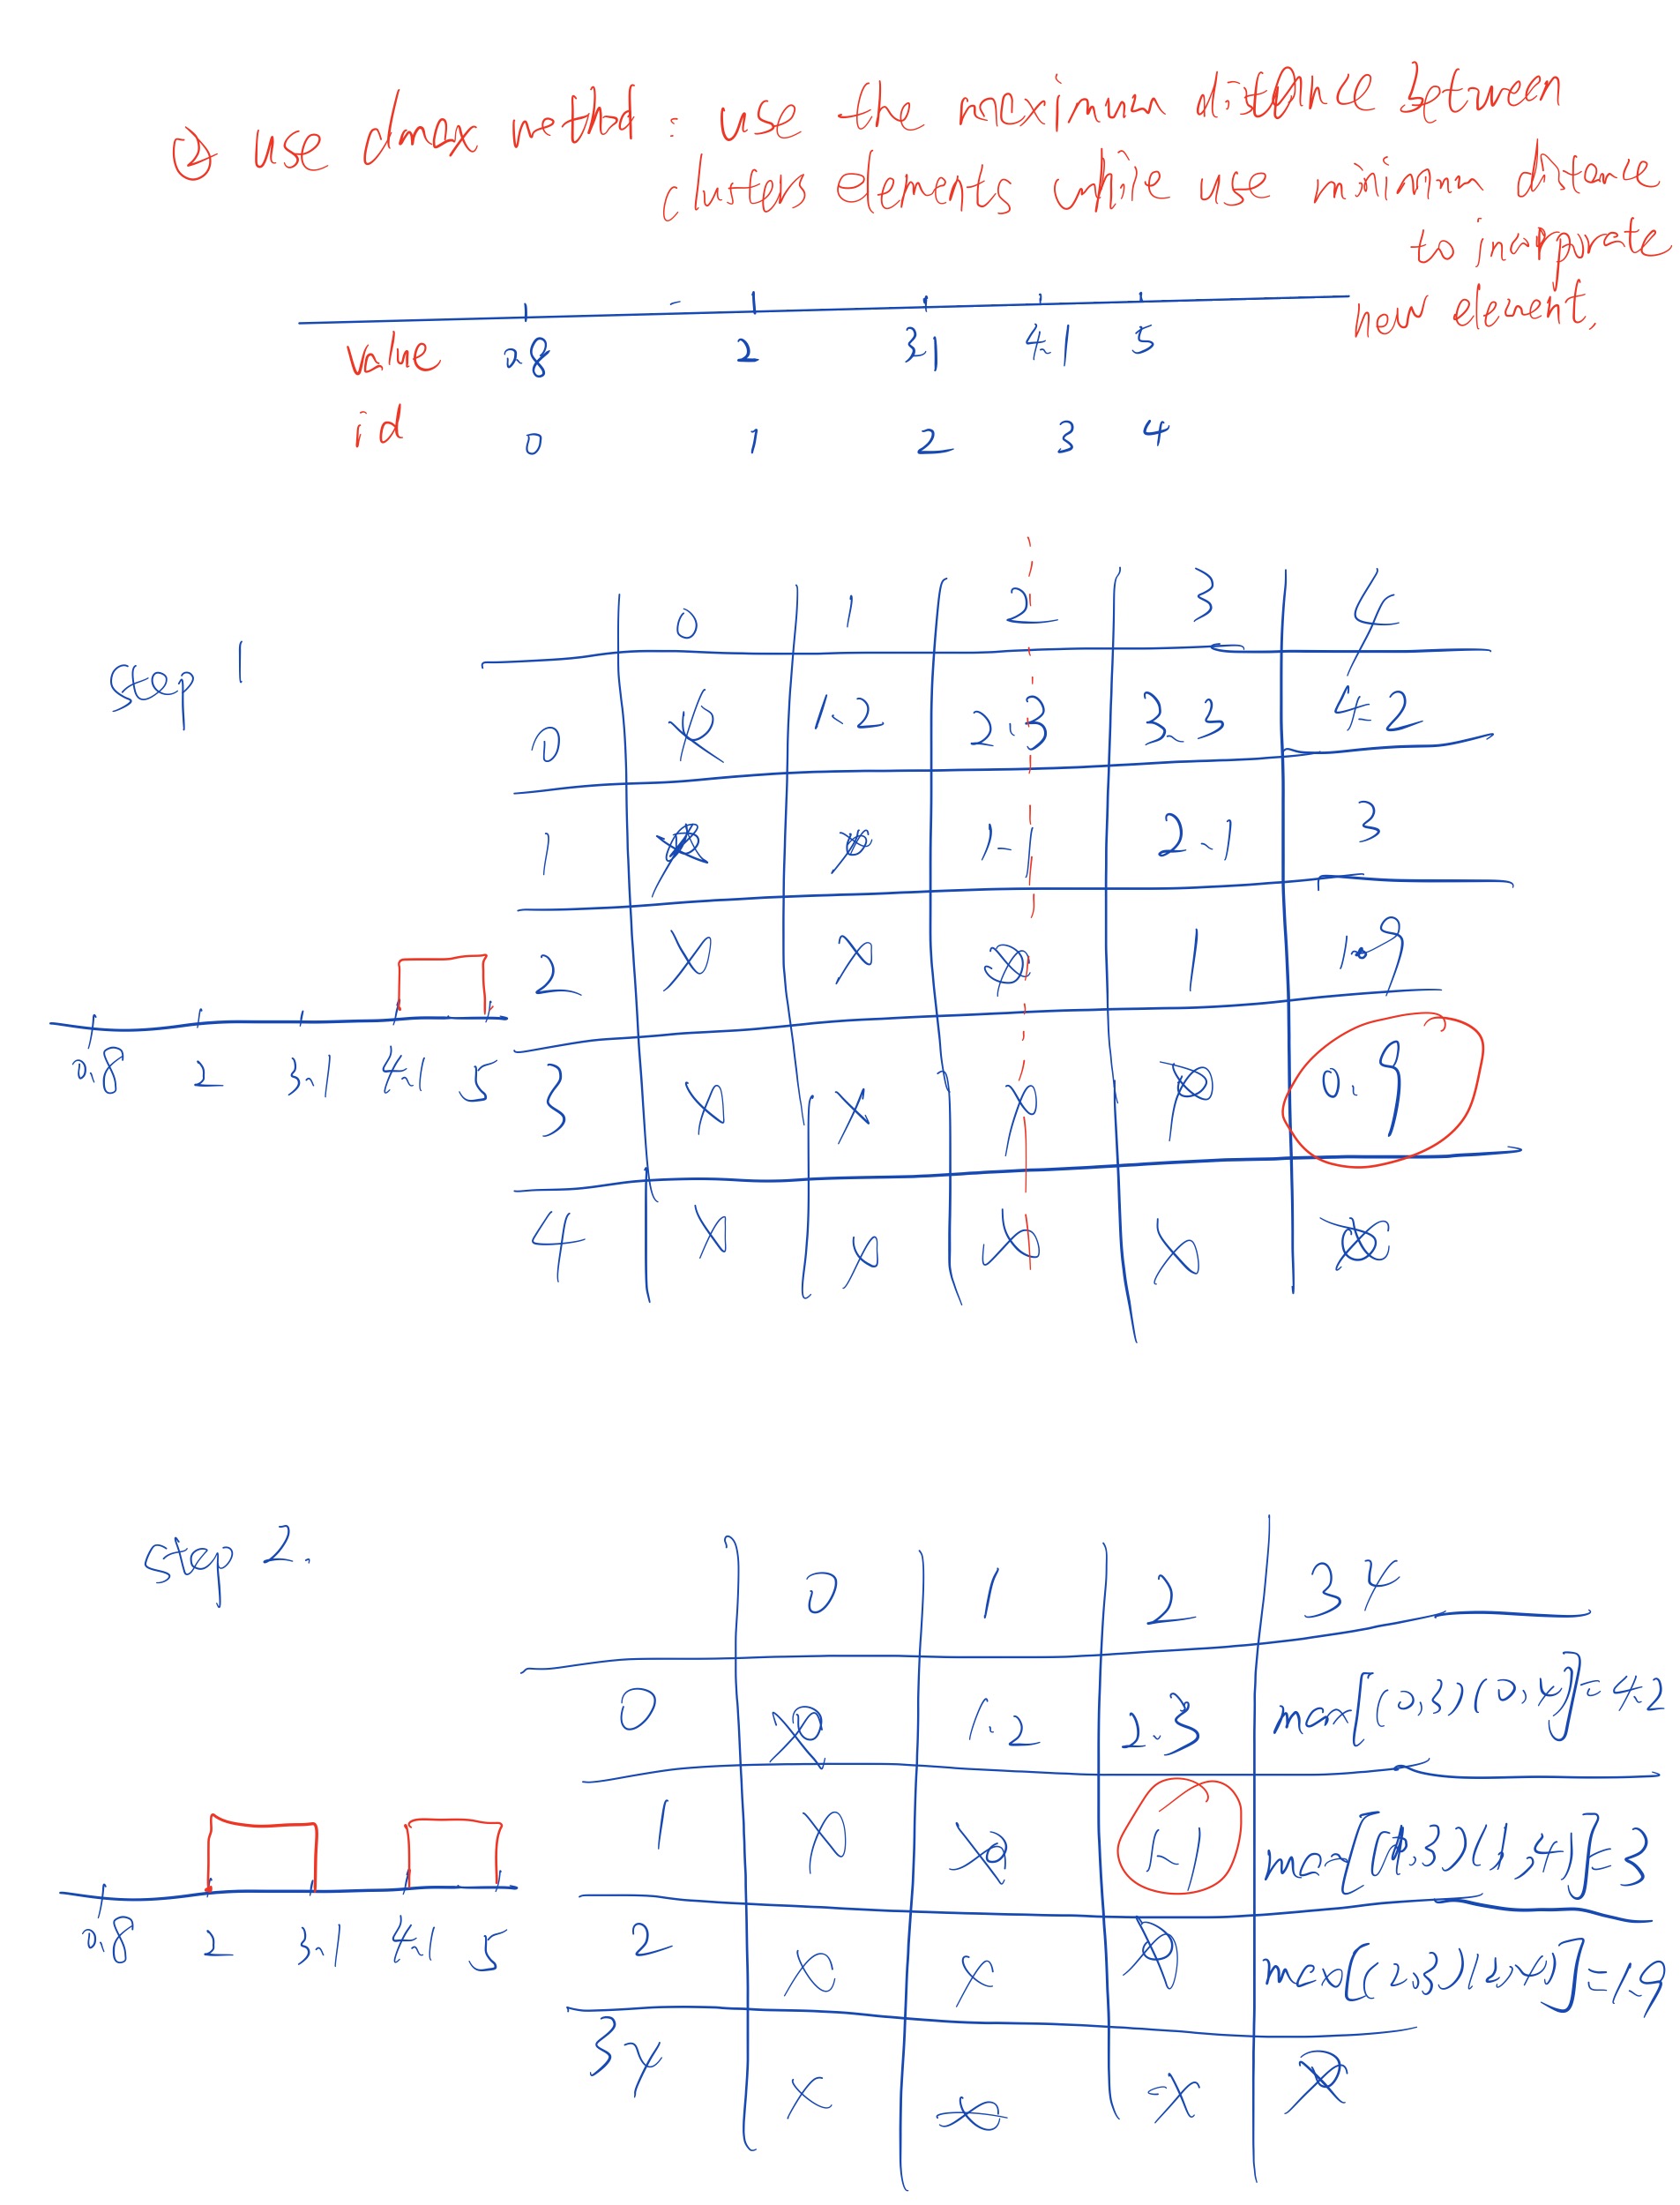 ② use dmax method : use the maximum distance between
clusters elements while use minimum distance
to incorporate
new element.
value 0.8 2 3.1 4.1 5
id 0 1 2 3 4
step 1
0 1 2 3 4
0 x 1.2 2.3 3.3 4.2
1 x x 1.1 2.1 3
2 x x x 1 1.9
3 x x x x 0.9
4 x x x x x
0.8 2 3.1 4.1 5
step 2.
0 1 2 34
0 x 1.2 2.3 max[(0,3)(0,4)]=4.2
1 x x 1.1 max[(1,3)(1,4)]=3
2 x x x max[(2,3)(2,4)]=1.9
34 x x x x
0.8 2 3.1 4.1 5